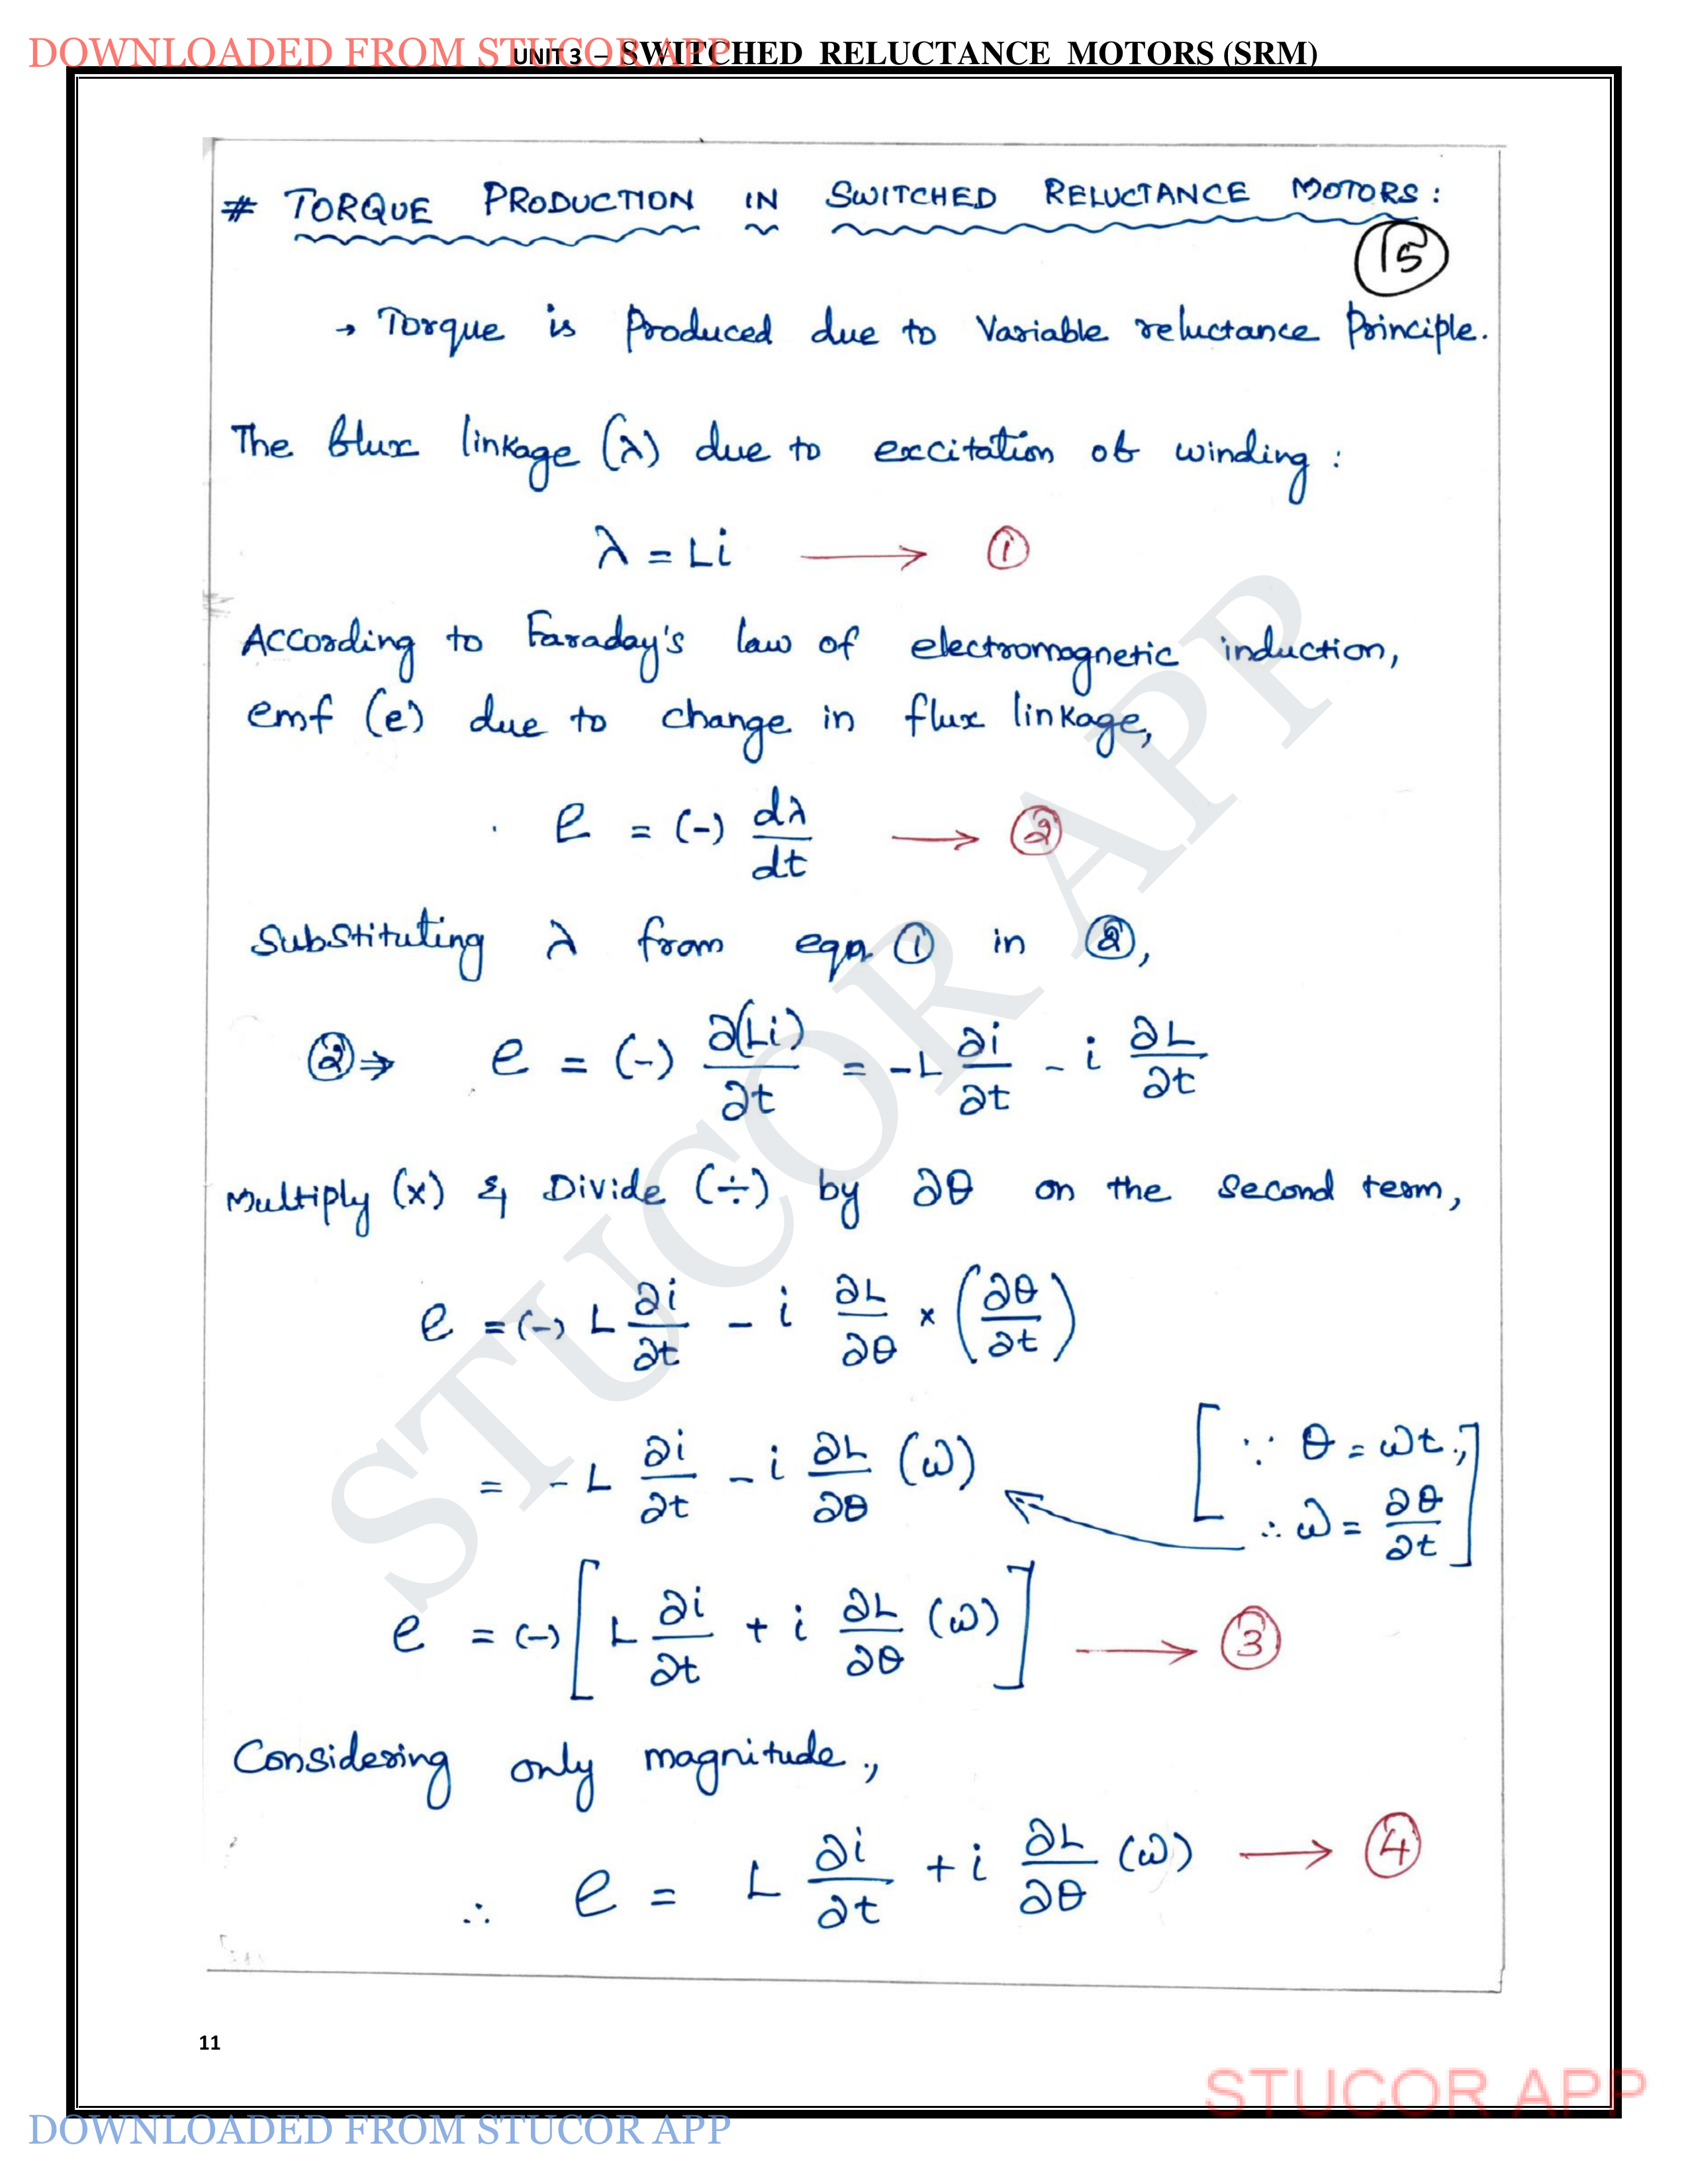 DOWNLOADED FROM STUCOR APP
UNIT 3 – SWITCHED RELUCTANCE MOTORS (SRM)
# TORQUE PRODUCTION IN SWITCHED RELUCTANCE MOTORS:
15
→ Torque is Produced due to Variable reluctance Principle.
The flux linkage (λ) due to excitation of winding:
λ = Li ⟶ ①
According to Faraday's law of electromagnetic induction,
emf (e) due to change in flux linkage,
e = (-) dλ/dt ⟶ ②
Substituting λ from eqn ① in ②,
② ⇒ e = (-) ∂(Li)/∂t = -L ∂i/∂t - i ∂L/∂t
Multiply (x) & Divide (÷) by ∂θ on the second term,
e = (-) L ∂i/∂t - i ∂L/∂θ × (∂θ/∂t)
= -L ∂i/∂t - i ∂L/∂θ (ω) [∵ θ = ωt.,
∴ ω = ∂θ/∂t]
e = (-) [L ∂i/∂t + i ∂L/∂θ (ω)] ⟶ ③
Considering only magnitude.,
∴ e = L ∂i/∂t + i ∂L/∂θ (ω) ⟶ ④
STUCOR APP
11
STUCOR APP
DOWNLOADED FROM STUCOR APP